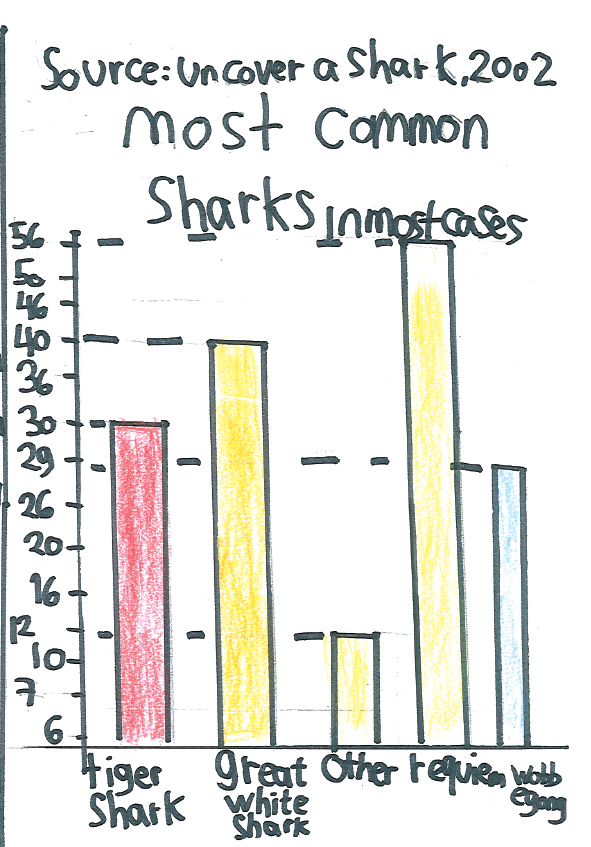 Source: Uncover a Shark, 2002
most common
Sharks in most cases
56
50
46
40
36
30
29
26
20
16
12
10
7
6
tiger
Shark
great
white
Shark
Other
requiem
wobb
egong